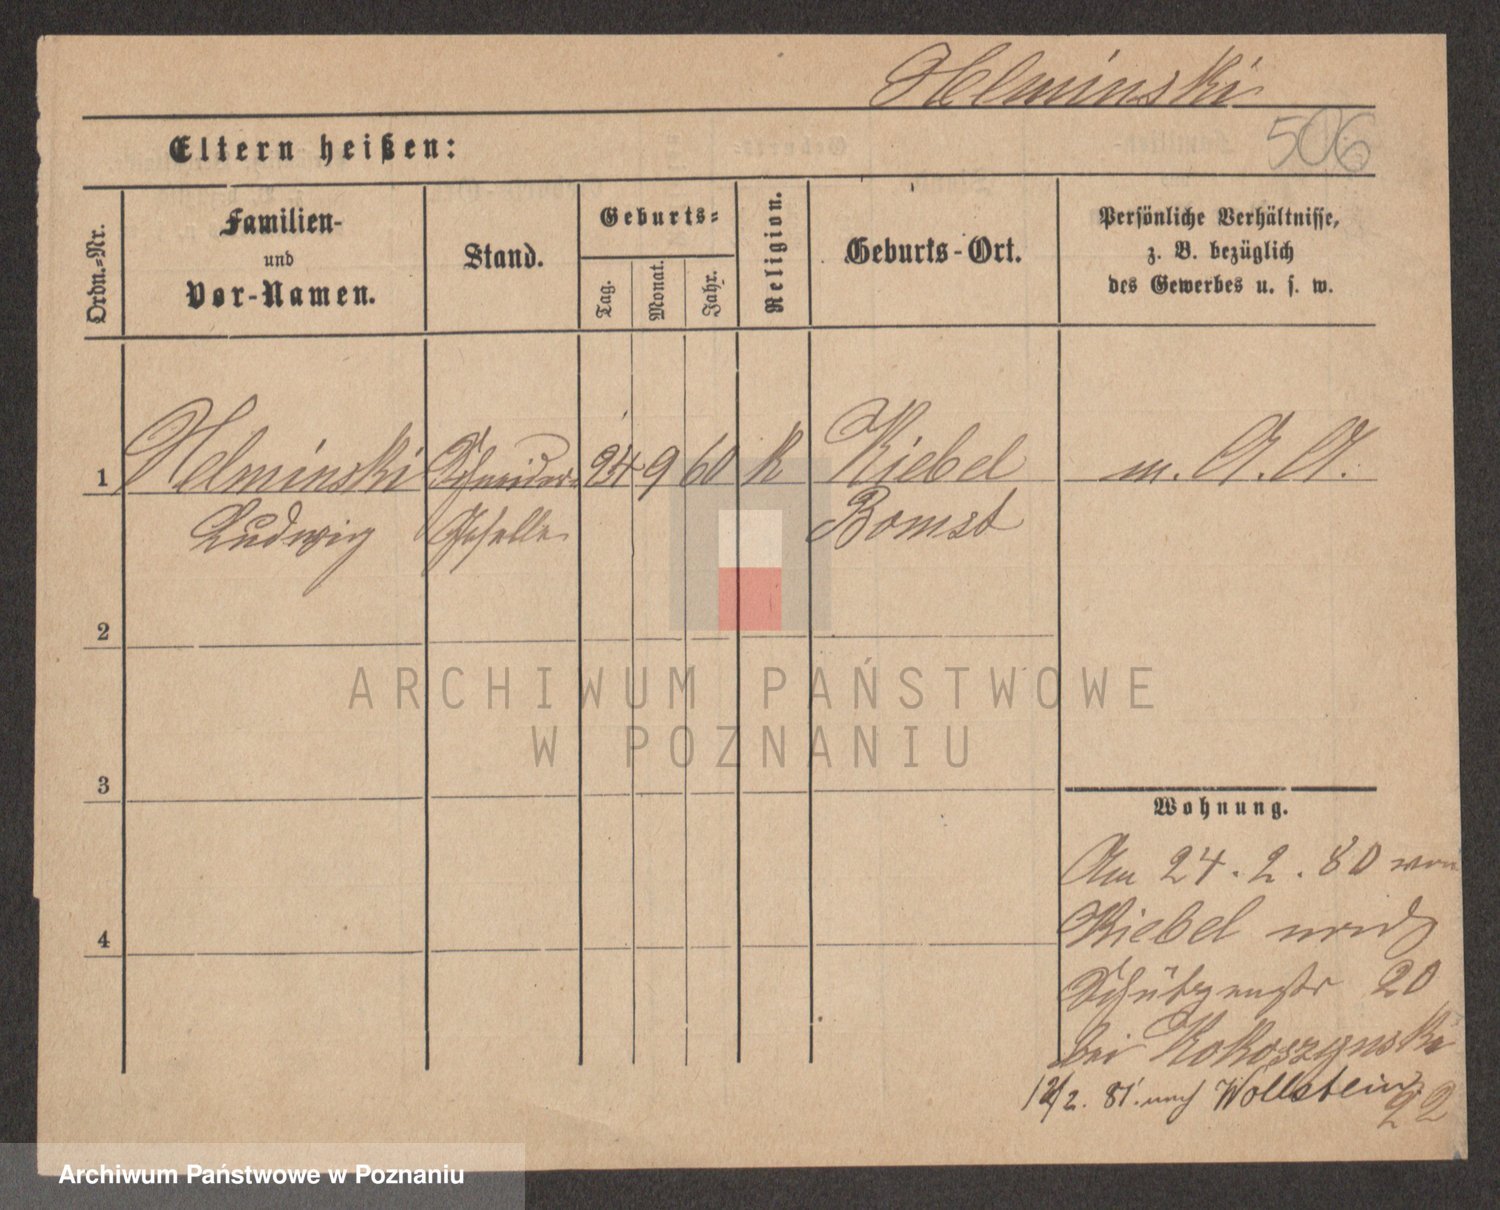 Helminski
506
Eltern heißen:
Ordn.-Nr.
Familien-
und
Vor-Namen.
Stand.
Geburts-
Tag.
Monat.
Jahr.
Religion.
Geburts-Ort.
Persönliche Verhältnisse,
z. B. bezüglich
des Gewerbes u. s. w.
1 Helminski Schneider- 24 9 60 K Kiebel m. A. A.
Ludwig Geselle Bomst
2
3
4
Wohnung.
Am 24. 2. 80 von
Kiebel nach
Schützenstr 20
bei Kokoszynski
12/2. 81. nach Wollstein
22
ARCHIWUM PAŃSTWOWE
W POZNANIU
Archiwum Państwowe w Poznaniu